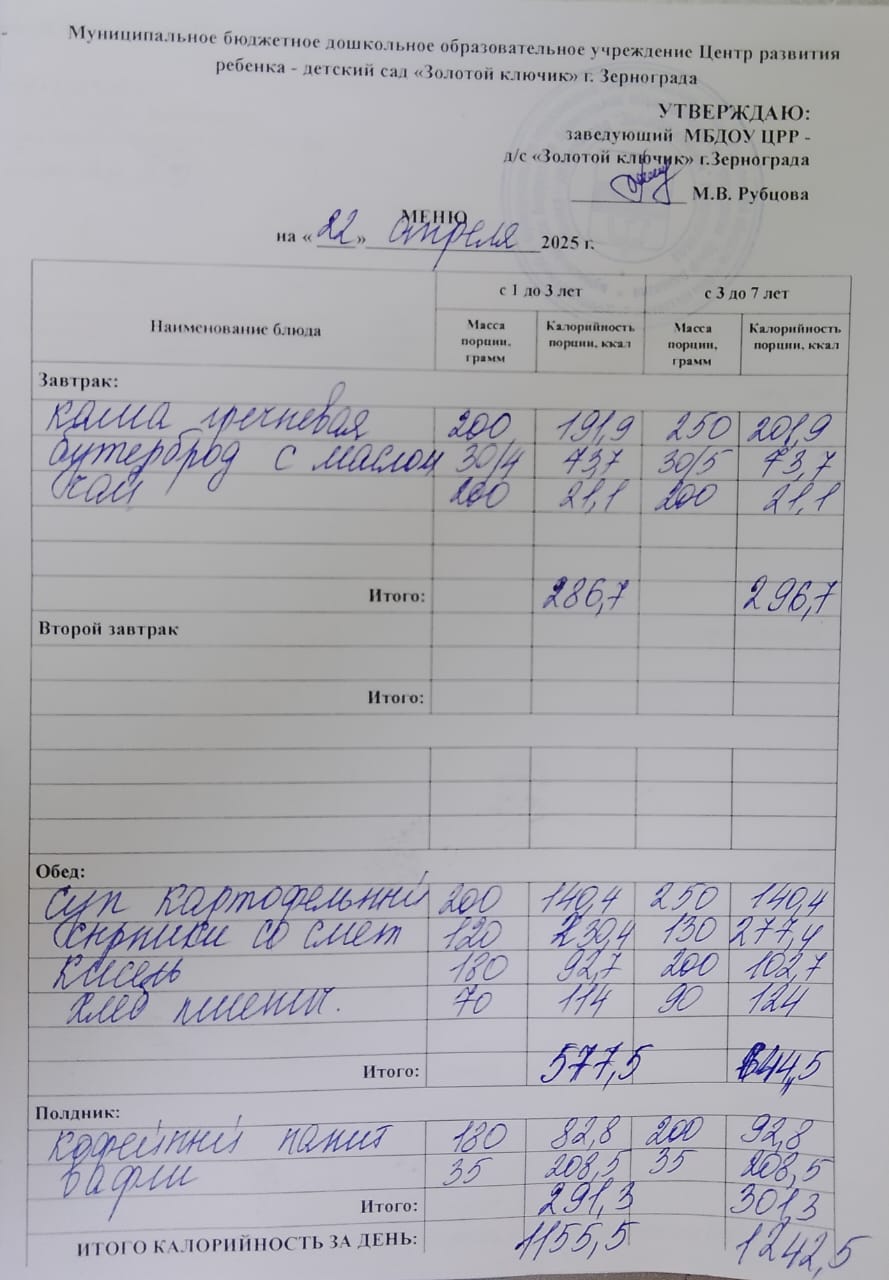 Муниципальное бюджетное дошкольное образовательное учреждение Центр развития
ребенка - детский сад «Золотой ключик» г. Зернограда
УТВЕРЖДАЮ:
заведующий МБДОУ ЦРР -
д/с «Золотой ключик» г.Зернограда
М.В. Рубцова
МЕНЮ
на «22» апреля 2025 г.
Наименование блюда с 1 до 3 лет с 3 до 7 лет
Масса порции, грамм Калорийность порции, ккал Масса порции, грамм Калорийность порции, ккал
Завтрак:
каша гречневая 200 191,9 250 201,9
бутерброд с маслом 30/4 73,7 30/5 73,7
чай 200 21,1 200 21,1
Итого: 286,7 296,7
Второй завтрак
Итого:
Обед:
суп картофельный 200 140,4 250 140,4
сырники со смет 120 230,4 130 277,4
кисель 180 92,7 200 102,7
хлеб пшенич. 70 114 90 124
Итого: 577,5 644,5
Полдник:
кофейный напит 180 82,8 200 92,8
вафли 35 208,5 35 208,5
Итого: 291,3 301,3
ИТОГО КАЛОРИЙНОСТЬ ЗА ДЕНЬ: 1155,5 1242,5